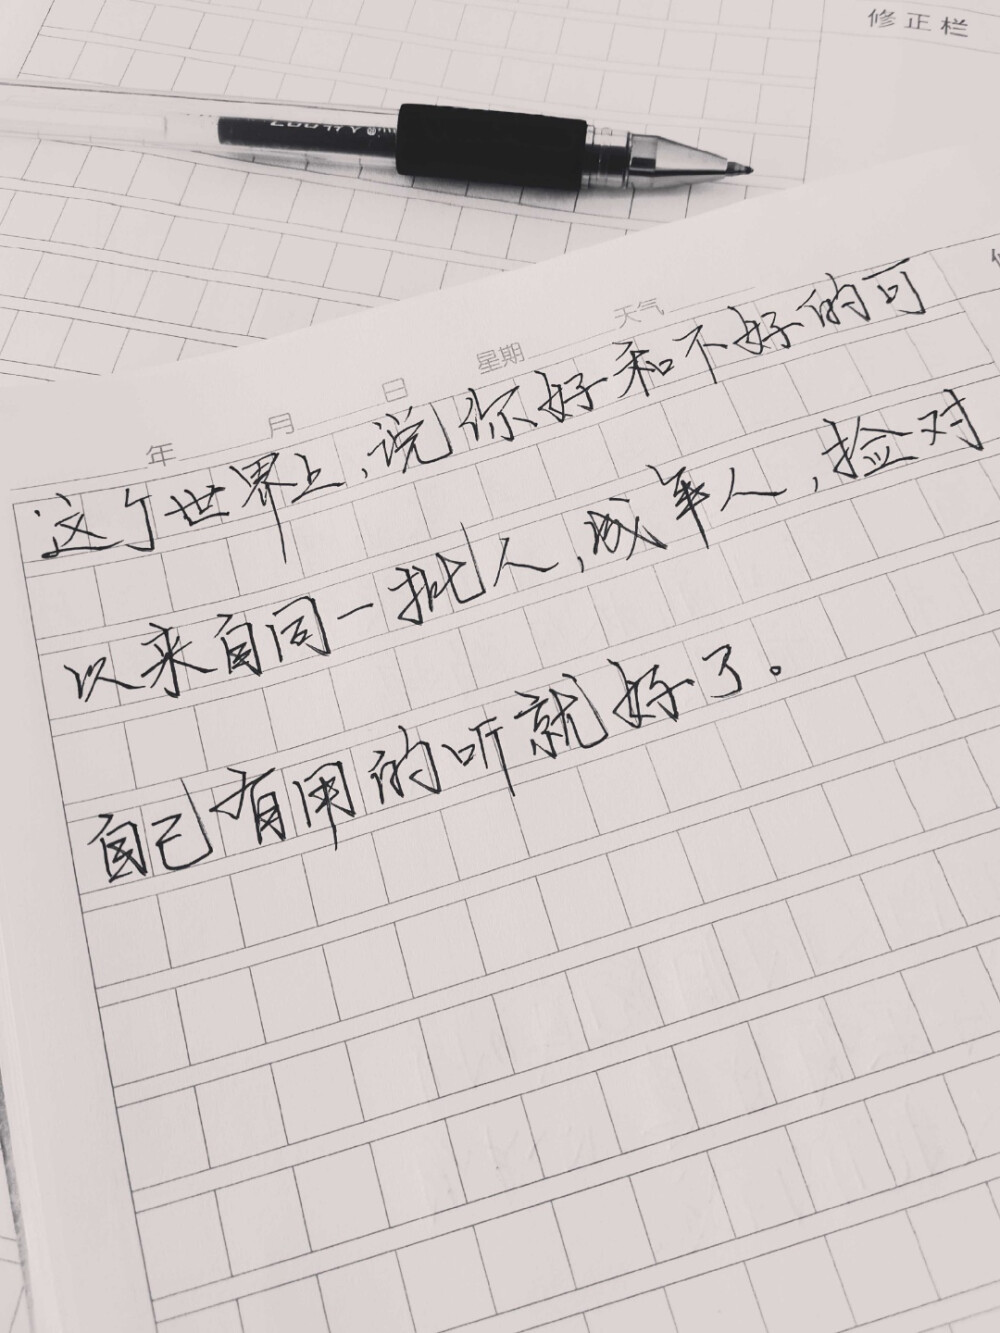 修正栏
年 月 日 星期 天气
这个世界上,说你好和不好的可
以来自同一批人,成年人,捡对
自己有用的听就好了。